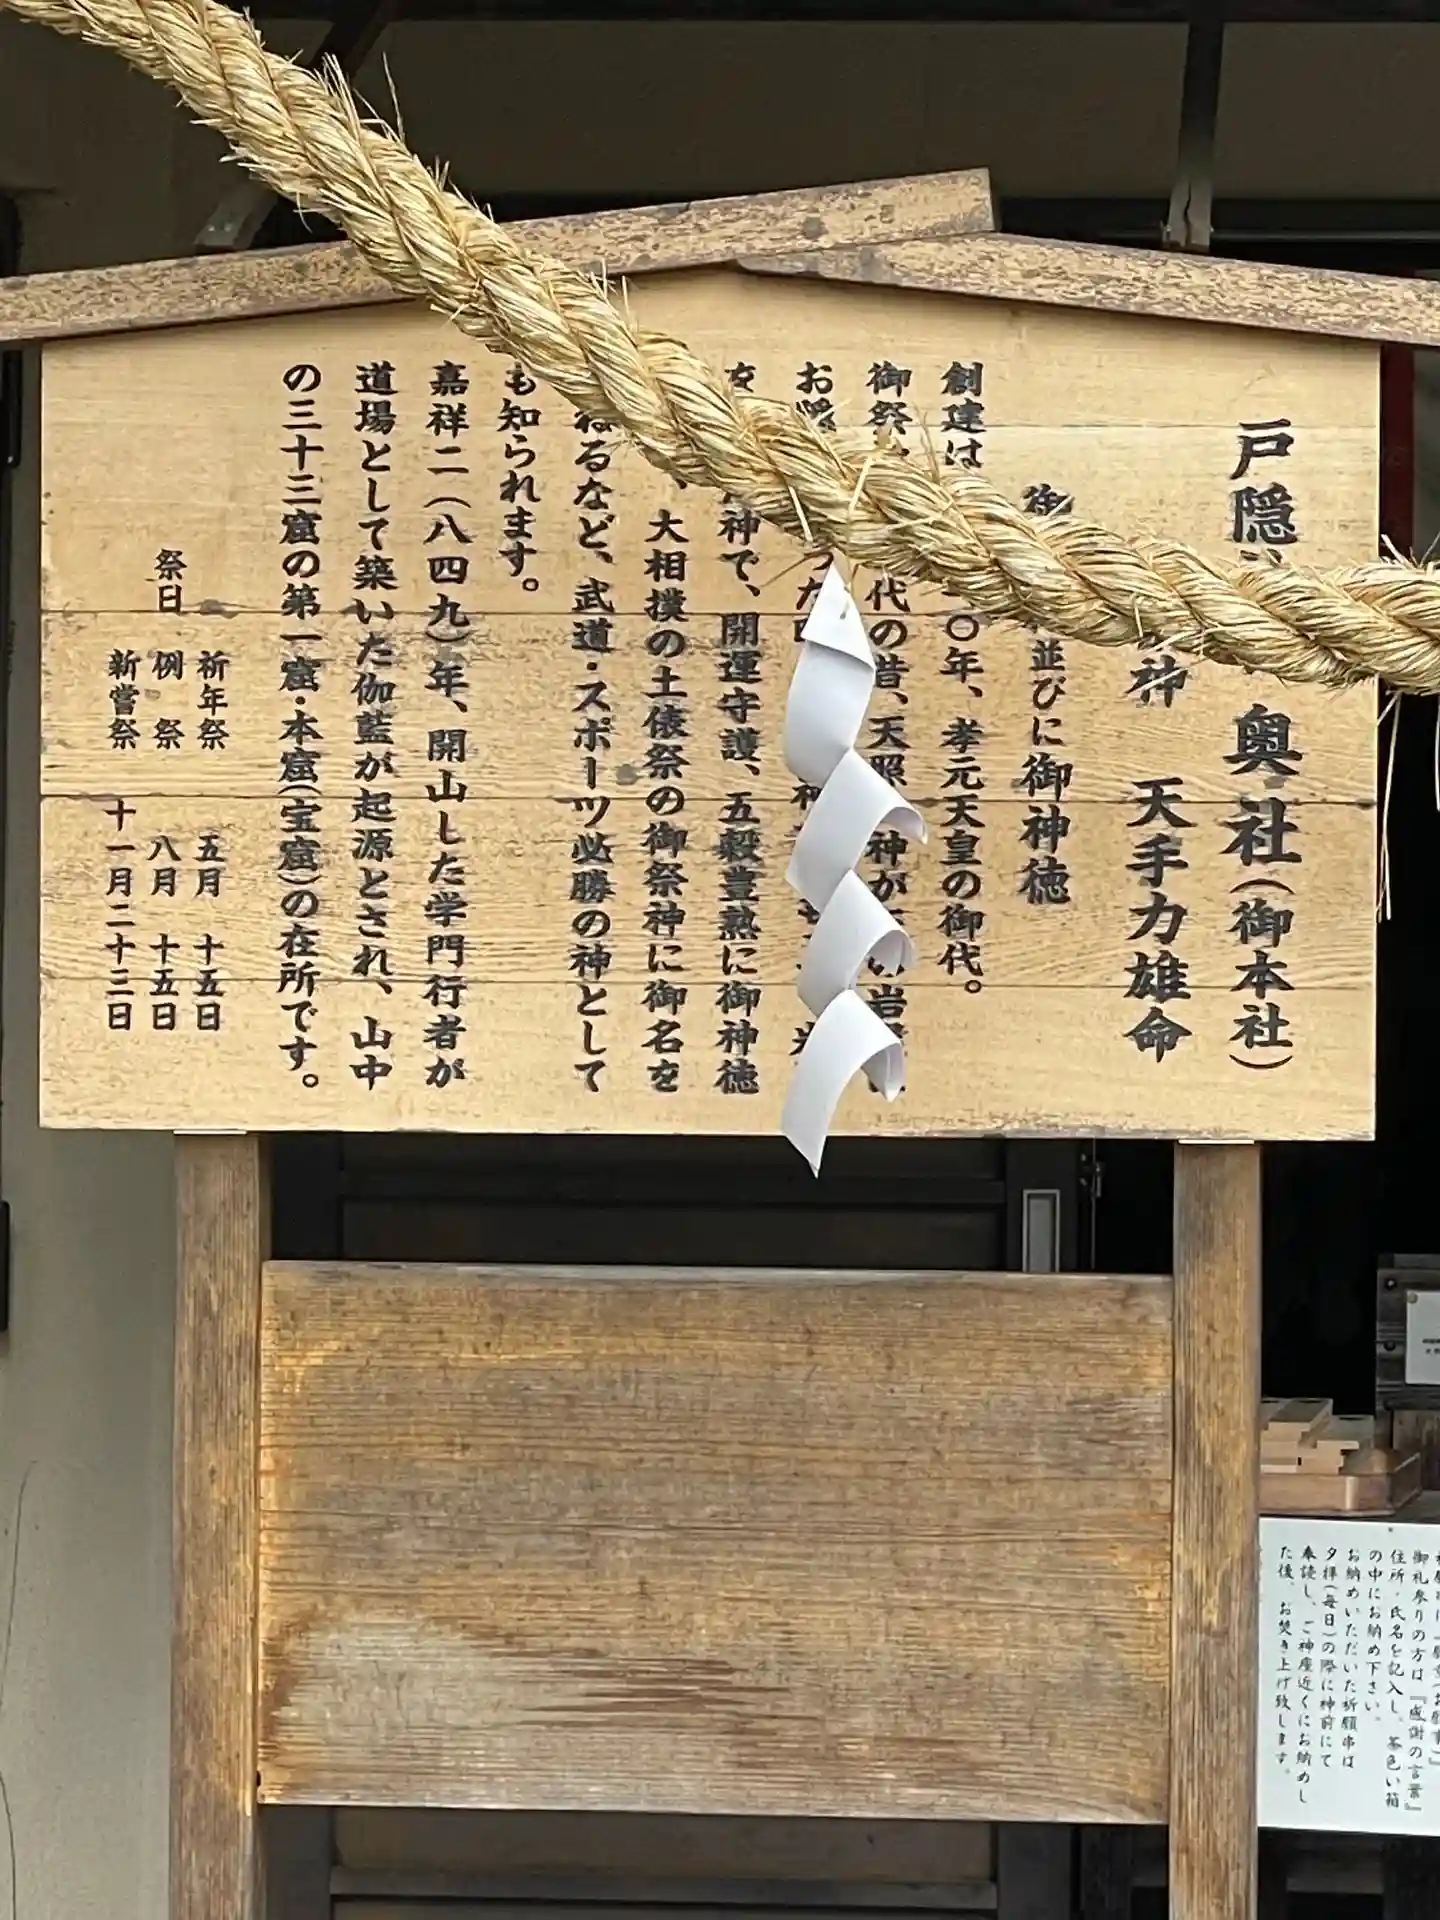 戸隠 奥社(御本社)
神 天手力雄命
御 並びに御神徳
創建は 〇年、孝元天皇の御代。
御祭 代の昔、天照 神が 岩
お隠 った
を 神で、開運守護、五穀豊熟に御神徳
、大相撲の土俵祭の御祭神に御名を
ねるなど、武道・スポーツ必勝の神として
も知られます。
嘉祥二(八四九)年、開山した学門行者が
道場として築いた伽藍が起源とされ、山中
の三十三窟の第一窟・本窟(宝窟)の在所です。
祈年祭 五月 十五日
祭日 例 祭 八月 十五日
新嘗祭 十一月二十三日
御礼参りの方は『感謝の言葉』
住所・氏名を記入し、茶色い箱
の中にお納め下さい。
お納めいただいた祈願串は
夕拝(毎日)の際に神前にて
奉読し、ご神座近くにお納めし
た後、お焚き上げ致します。